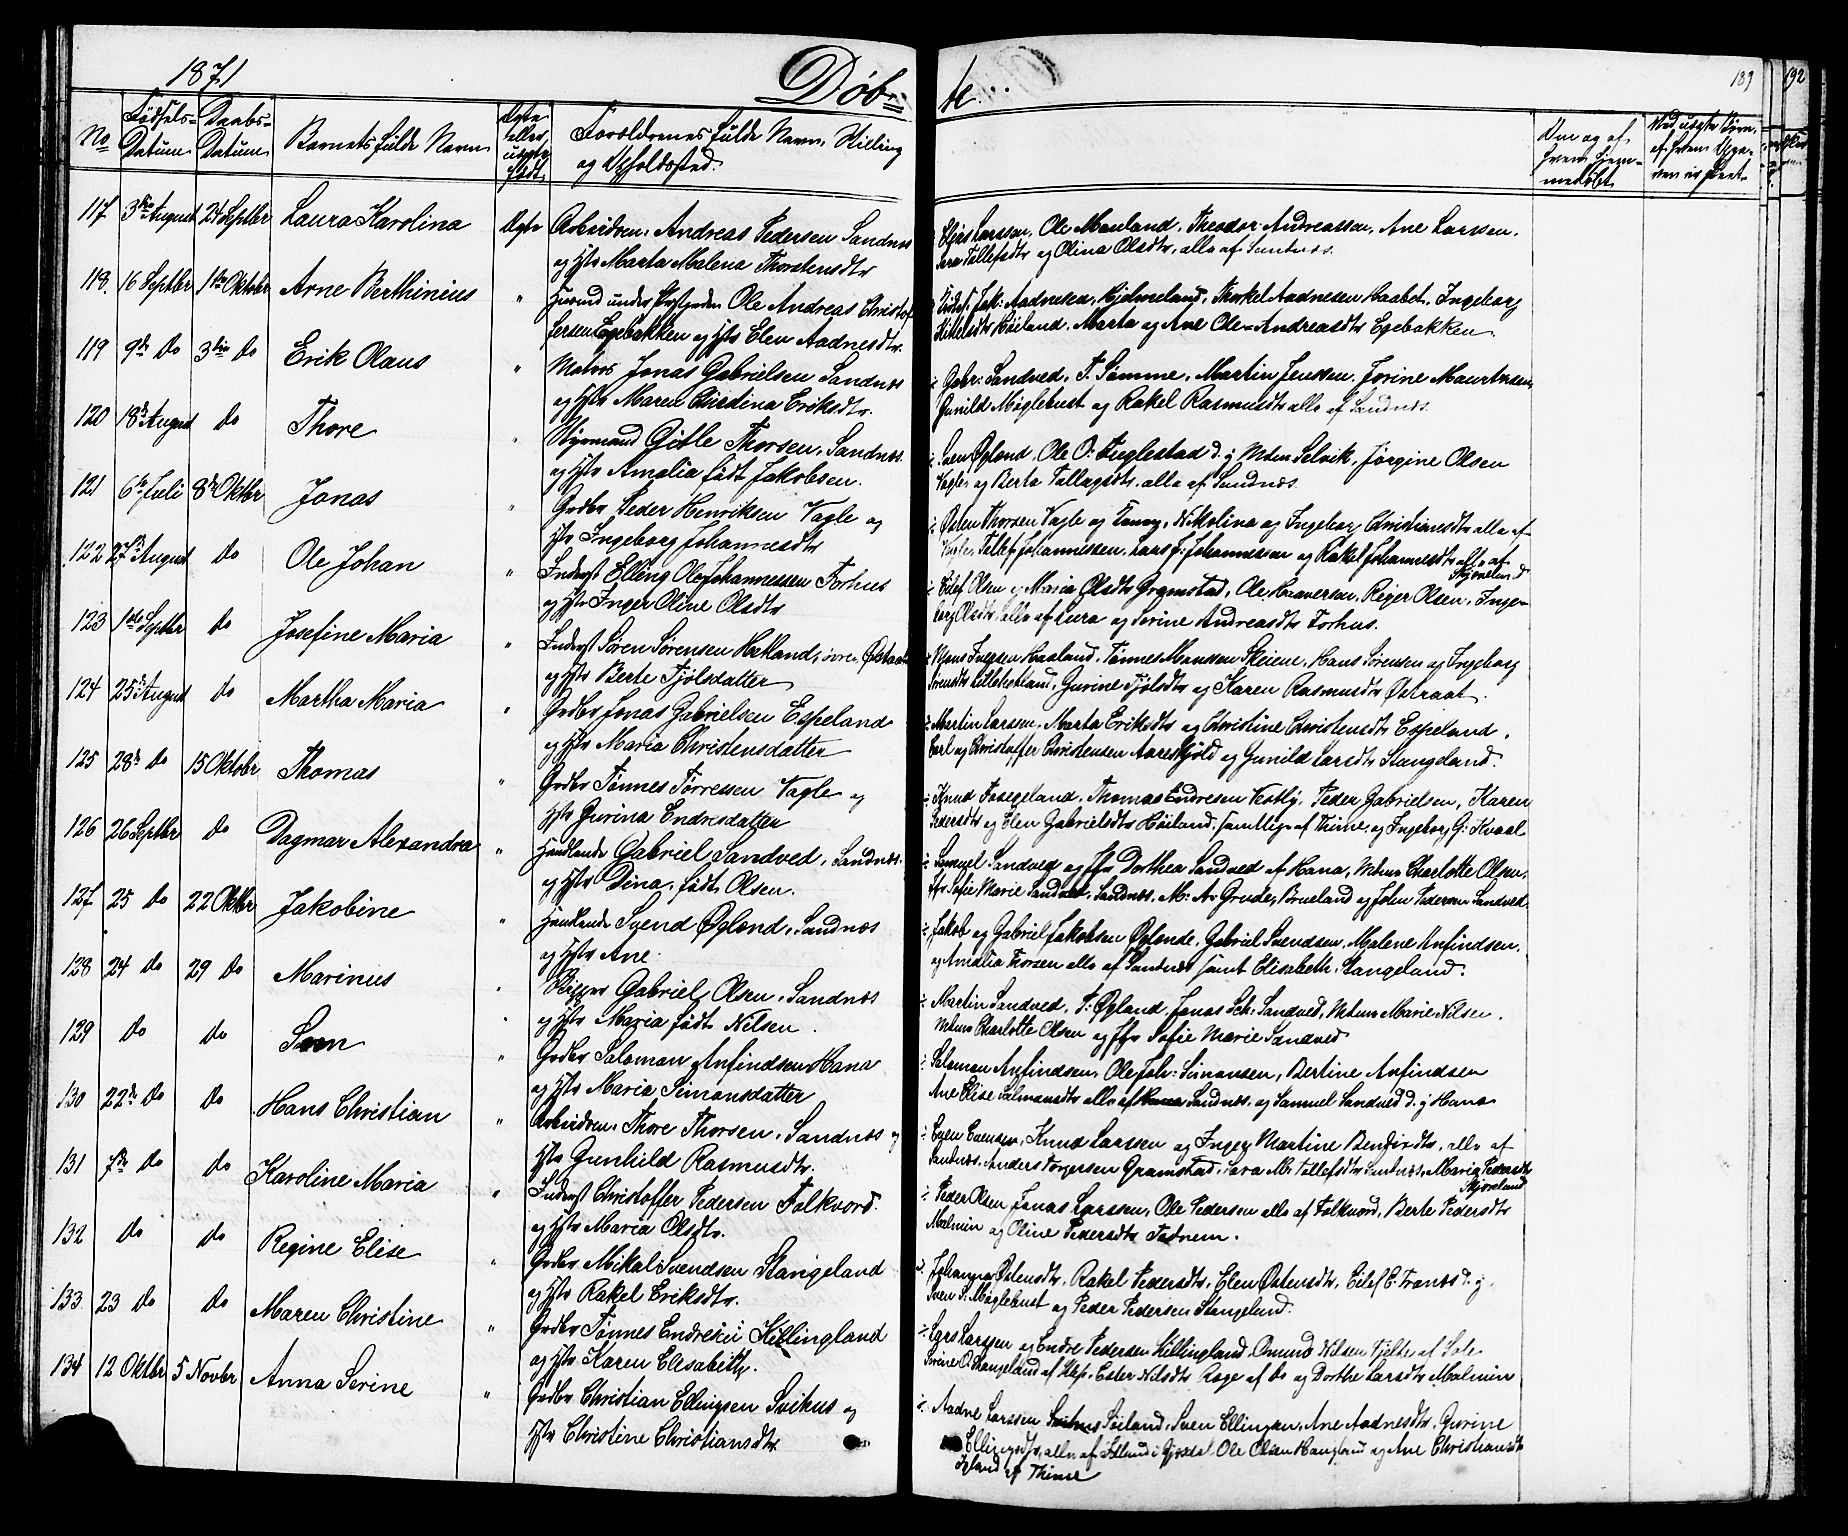 1871
Døbte.
189
192
No
Fødsels-Datum
Daabs-Datum
Barnets fulde Navn
Ægte eller uægte født
Forældrenes fulde Navn, Stilling
og Opholdssted.
117 3die August 24 Septbr Laura Karolina Ægte Arbeidsm. Andreas Pedersen Sandnes
og Hstr Marta Malena Thorstensdtr
Elias Larssen, Ole Mauland, Theodor Andreassen, Ane Larssen,
Sara Tollefsdtr og Olina Olsdtr, alle af Sandnes.
118. 16 Septbr 1ste Oktobr Arne Berthinius " Husmd under Præstgrden Ole Andreas Christof-
fersen Egebakken og Hstr Elen Aadnesdtr.
Jak: Aadnesen, Hjelmeland, Thorkel Aadnesen Haabet, Ingeborg
Høiland, Marta og Ane Ole-Andreasdtr Egebakken.
119 9de Do 3die Do Erik Olaus " Matros Jonas Gabrielsen Sandnes
og Hstr Maren Gurdina Eriksdtr.
Gabr: Sandved, T. Sømme, Martin Jenssen, Jorine Mauritzsen,
Gunild Møglebust og Rakel Rasmusdtr alle af Sandnes.
120 18de August do Thore " Styrmand Gitle Thorsen, Sandnes
og Hstr Amalia født Jakobsen.
Sven Øglænd, Ole O: Fuglestad d. y. Mdm Selvik, Jørgine Olsen
Vagle, og Berta Tallagsdtr, alle af Sandnes.
121 6te Juli 8de Oktbr Jonas " Grdbr Peder Henriksen Vagle og
Hstr Ingeborg Johannesdtr
Østen Thorsen Vagle og Nikolina og Ingeborg Christiansdtr alle af
Vagle, Tollef Johannessen, Lars J: Johannessen og Rakel Johannesdtr alle af
Skjæveland
122 27de August do Ole Johan " Inderst Elling Ole Johannessen Forhus
og Hstr Inger Oline Olsdtr
Eilef Olsen og Maria Olsdtr Gramstad, Ole Haaversen, Reier Olsen, Inge-
borg Olsdtr, alle af Lura og Serine Andreasdtr Forhus.
123 1ste Septbr do Josefine Maria " Inderst Søren Sørensen Hetland, øvre Østraat
og Hstr Berte Tjølsdatter
Mons Iversen Haaland, Tønnes Monssen Skeiene, Hans Sørensen og Ingeborg
Sørensdtr Lillehetland, Gurine Tjølsdtr og Karen Rasmusdtr Østraat.
124 25de August do Martha Maria " Grdbr Jonas Gabrielsen Espeland
og Hstr Maria Christensdatter
Martin Larsen, Marta Eriksdtr og Christine Christensdtr Espeland,
Carl og Christoffer Christensen Aareskjold og Gunild Larsdtr Stangeland.
125 28de Do 15 Oktobr Thomas " Grdbr Tønnes Tørressen Vagle og
Hstr Gurina Endresdatter
Knud Fosegeland, Thomas Endresen Vestly, Peder Gabrielsen, Karen
Pedersdtr og Elen Gabrielsdtr Høiland, samtlige af Thime, og Ingeborg G: Kvaal
126 26 Septbr do Dagmar Alexandra " Handlende Gabriel Sandved, Sandnes
og Hstr Dina, født Olsen.
Samuel Sandved og Jfr Dorthea Sandved af Hana, Mdm Charlotte Olsen,
Jfr Sofie Marie Sandved, Sandnes, M: A: Grude, Brueland og John Pedersen Sandved.
127 25 Do 22 Oktbr Jakobine " Handlende Svend Øglænd, Sandnes
og Hstr Ane.
Jakob og Gabriel Jakobsen Øglænde, Gabriel Svendsen, Malene Anfindsen,
og Amalia Thorsen alle af Sandnes samt Elisabeth Stangeland.
128 24 Do 29 Do Marinus Skipper Gabriel Olsen, Sandnes
og Hstr Maria født Nilsen.
Martin Sandved, T: Øgland, Jonas Sch: Sandved, Mdm Marie Nilsen,
Mdm Charlotte Olsen og Jfr Sofie Marie Sandved
129 do do Sven " Grdbr Salomon Anfindsen Hana
og Hstr Maria Simonsdatter
Salomon Anfindsen, Ole Joh: Simonsen, Bertine Anfindsen
Ane Elise Salmonsdtr alle af Sandnes, og Samuel Sandved d. y. Hana
130 22de Do do Hans Christian " Arbeidsm. Thore Thorsen, Sandnes og
Hstr Gunhild Rasmusdtr.
Sven Evensen, Knud Larssen og Inger Martine Bendixdtr, alle af
Sandnes, Anders Torgersen Gramstad, Sara M: Tollefsdtr Sandnes, Maria Pedersdtr
Skjæveland
131 7de Do do Karoline Maria " Inderst Christoffer Pedersen Folkvord
og Hstr Maria Olsdtr.
Peder Olsen, Jonas Larssen, Ole Pedersen alle af Folkvord, Berte Pedersdtr
Malmin og Oline Pedersdtr Fadnem.
132 do do Regine Elise " Grdbr Mikal Svendsen Stangeland
og Hstr Rakel Eriksdtr.
Johanna Østensdtr, Rakel Pedersdtr, Elen Østensdtr, Eilef E. Tranes d. y.
Sven S. Møglebust og Peder Pedersen Stangeland.
133 23 Do do Maren Christine " Grdbr Tønnes Endresen Killingland
og Hstr Karen Elisabeth.
Lars Larssen og Endre Pedersen Killingland, Omund Nilsen Tjelte af Sole
Serine O. Stangeland af Klep, Ester Nilsdtr Rage af Do og Dorthe Larsdtr Malmin
134 12 Oktbr 5 Novbr Anna Serine " Grdbr Christian Ellingsen Svihus og
Hstr Christine Christiansdtr
Aadne Larssen Søiland, Sven Ellingsen, Ane Aadnesdtr, Gurine
Ellingsdtr, alle af i Gjesdal, Ole Olsen Haugland og Ane Christiansdtr
af Thime